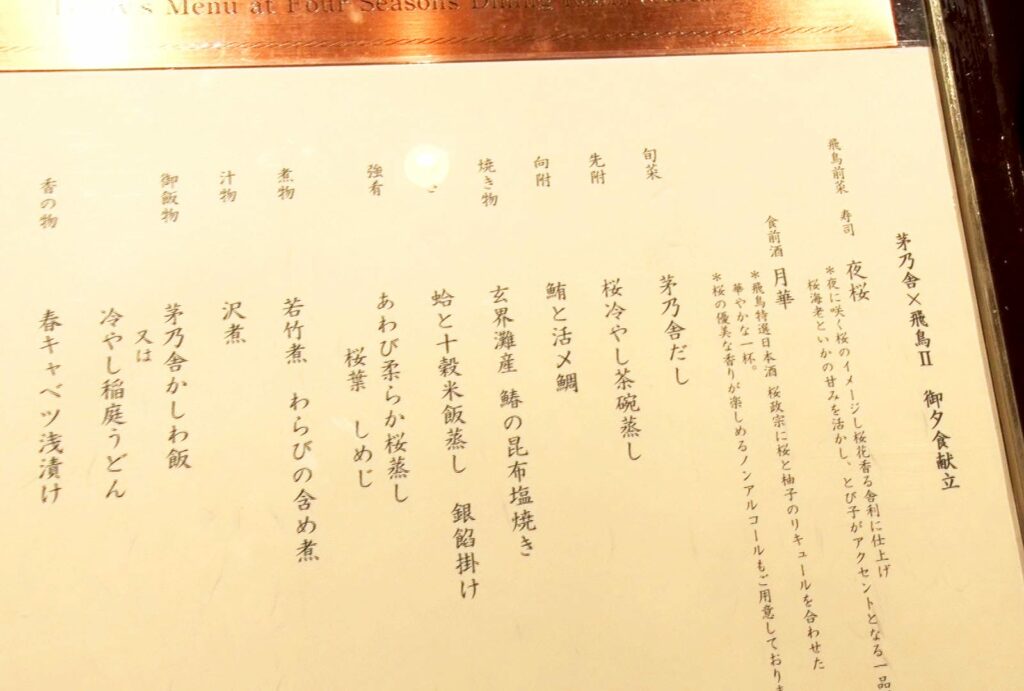 's Menu at Four Seasons Dining
茅乃舎×飛鳥Ⅱ 御夕食献立
飛鳥前菜 寿司 夜桜
＊夜に咲く桜のイメージし桜花香る舎利に仕上げ
桜海老といかの甘みを活かし、とび子がアクセントとなる一品
食前酒 月華
＊飛鳥特選日本酒 桜政宗に桜と柚子のリキュールを合わせた
華やかな一杯。
＊桜の優美な香りが楽しめるノンアルコールもご用意しており
旬菜 茅乃舎だし
先附 桜冷やし茶碗蒸し
向附 鮪と活〆鯛
焼き物 玄界灘産 鰆の昆布塩焼き
蛤と十穀米飯蒸し 銀餡掛け
強肴 あわび柔らか桜蒸し
桜葉 しめじ
煮物 若竹煮 わらびの含め煮
汁物 沢煮
御飯物 茅乃舎かしわ飯
又は
冷やし稲庭うどん
香の物 春キャベツ浅漬け